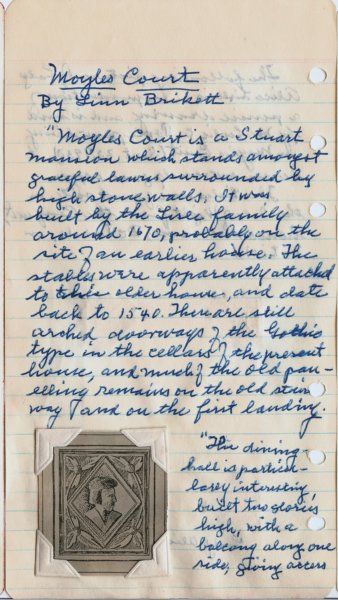 Moyles Court
By Linn Brikett
"Moyles Court is a Stuart
mansion which stands amongst
graceful lawns surrounded by
high stone walls. It was
built by the Lisle family
around 1670, probably on the
site of an earlier house. The
stables were apparently attached
to this older house, and date
back to 1540. There are still
arched doorways of the Gothic
type in the cellars of the present
house, and much of the old pan-
elling remains on the old stair
way and on the first landing.
"The dining-
hall is partic-
larly interesting,
built two stories
high, with a
balcony along one
side, giving access